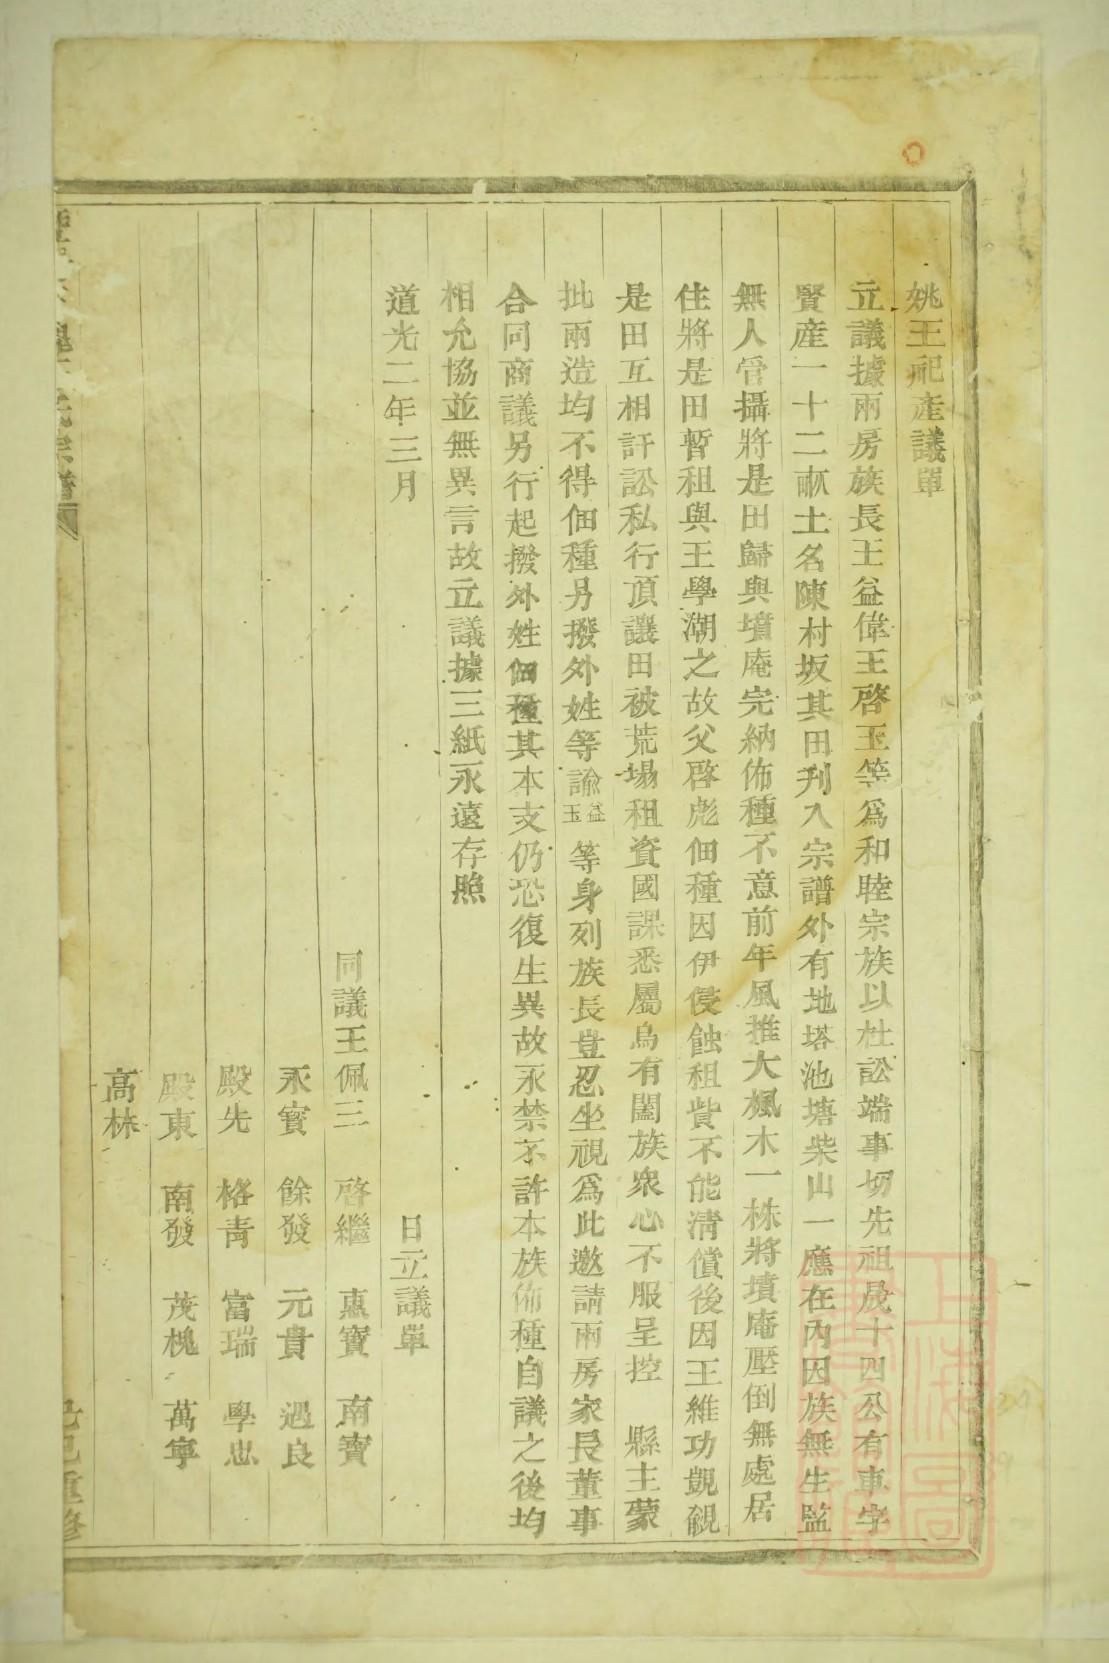 姚王祀產議單
立議據兩房族長王益偉王啓玉等爲和睦宗族以杜訟端事切先祖晟十四公有車字
賢産一十二畝土名陳村坂其田刋入宗譜外有地塔池塘柴山一應在內因族無生監
無人管攝將是田歸與墳庵完納佈種不意前年風推大楓木一株將墳庵壓倒無處居
住將是田暫租與王學湖之故父啓彪佃種因伊侵蝕租貲不能淸償後因王維功覬覦
是田互相訐訟私行頂讓田被荒塲租資國課悉屬烏有闔族衆心不服呈控 縣主蒙
批兩造均不得佃種另撥外姓等諭益玉等身列族長豈忍坐視爲此邀請兩房家長董事
合同商議另行起撥外姓佃種其本支仍恐復生異故永禁不許本族佈種自議之後均
相允協並無異言故立議據三紙永遠存照
道光二年三月 日立議單
同議王佩三 啓繼 惠寶 南寶
永寳 餘發 元貴 遇良
殿先 格青 富瑞 學忠
殿東 南發 茂槐 萬寧
高林
己巳重修
上海圖